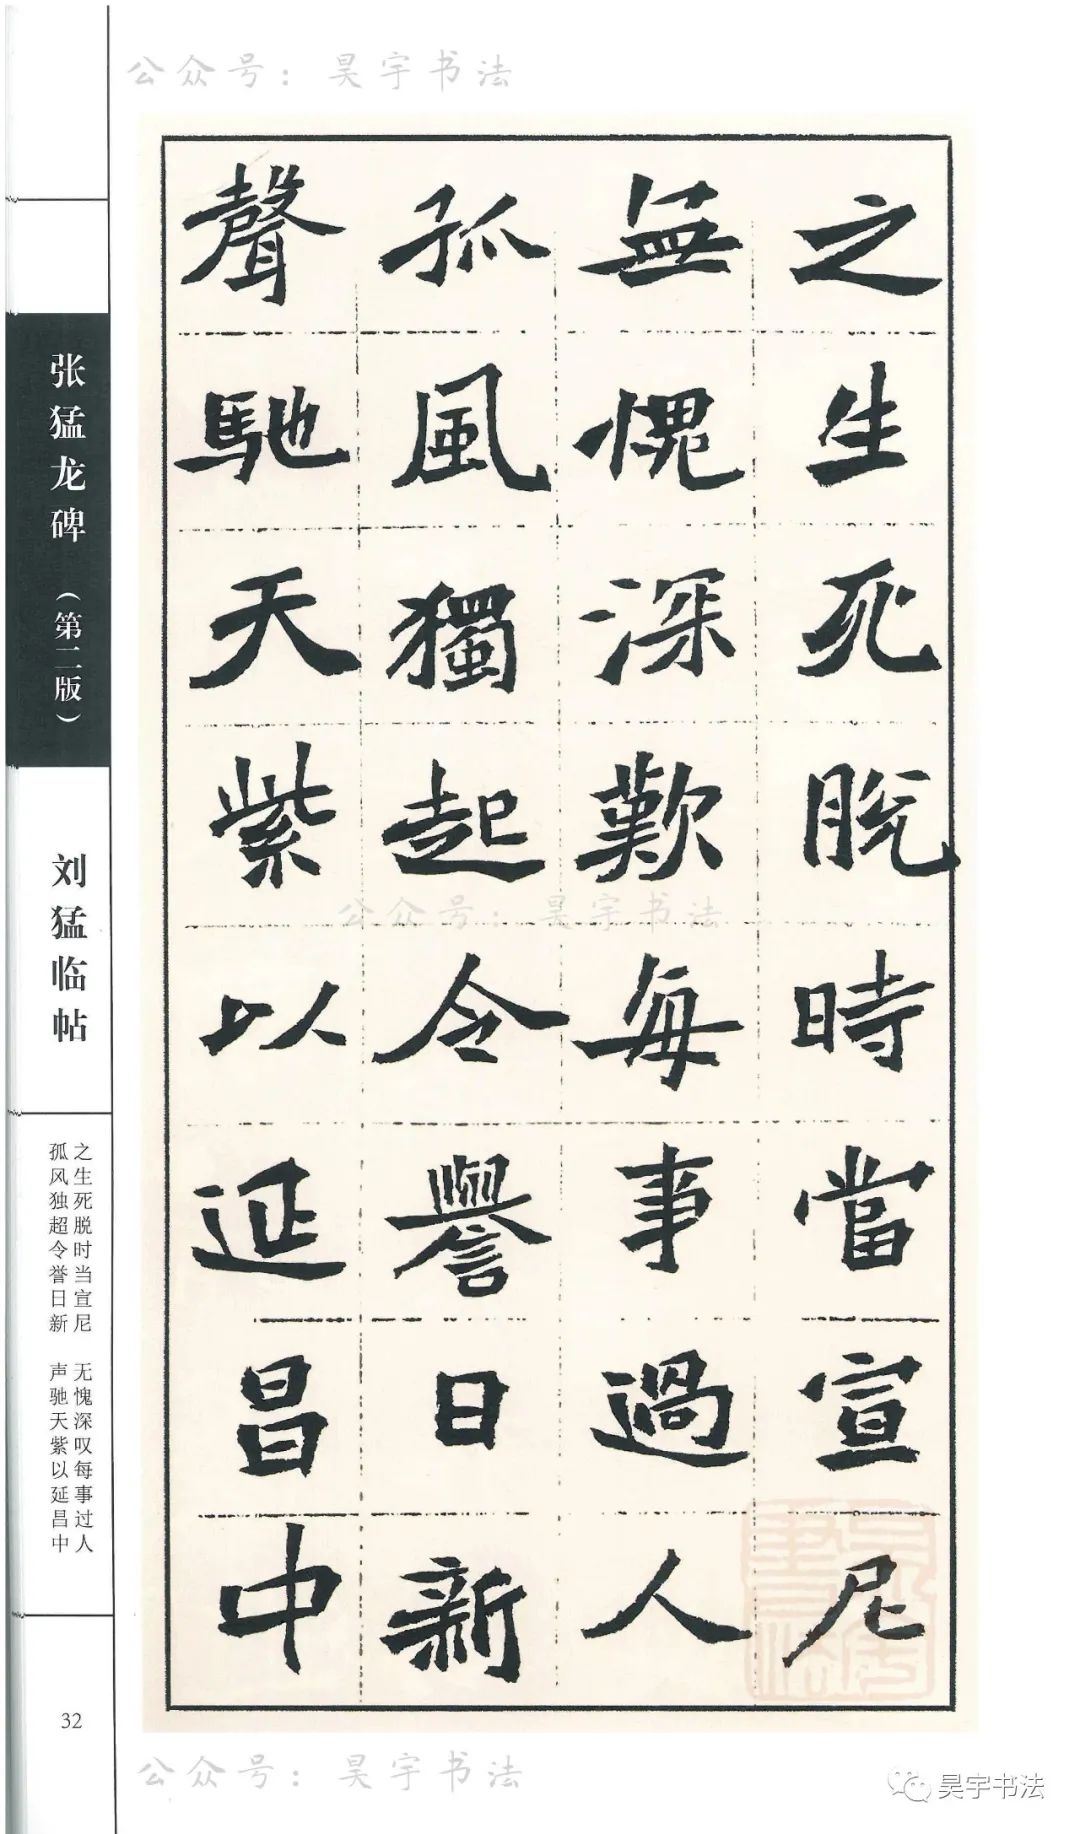 公众号：昊宇书法
之生死脫時當宣尼
無愧深歎每事過人
孤風獨起令譽日新
聲馳天紫以延昌中
公众号：昊宇书法
张猛龙碑（第二版）
刘猛临帖
之生死脱时当宣尼 无愧深叹每事过人
孤风独超令誉日新 声驰天紫以延昌中
32
公众号：昊宇书法
昊宇书法